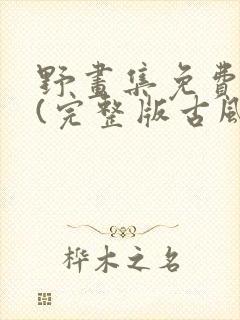 野畫集免費
(完整版古風
桦木之名